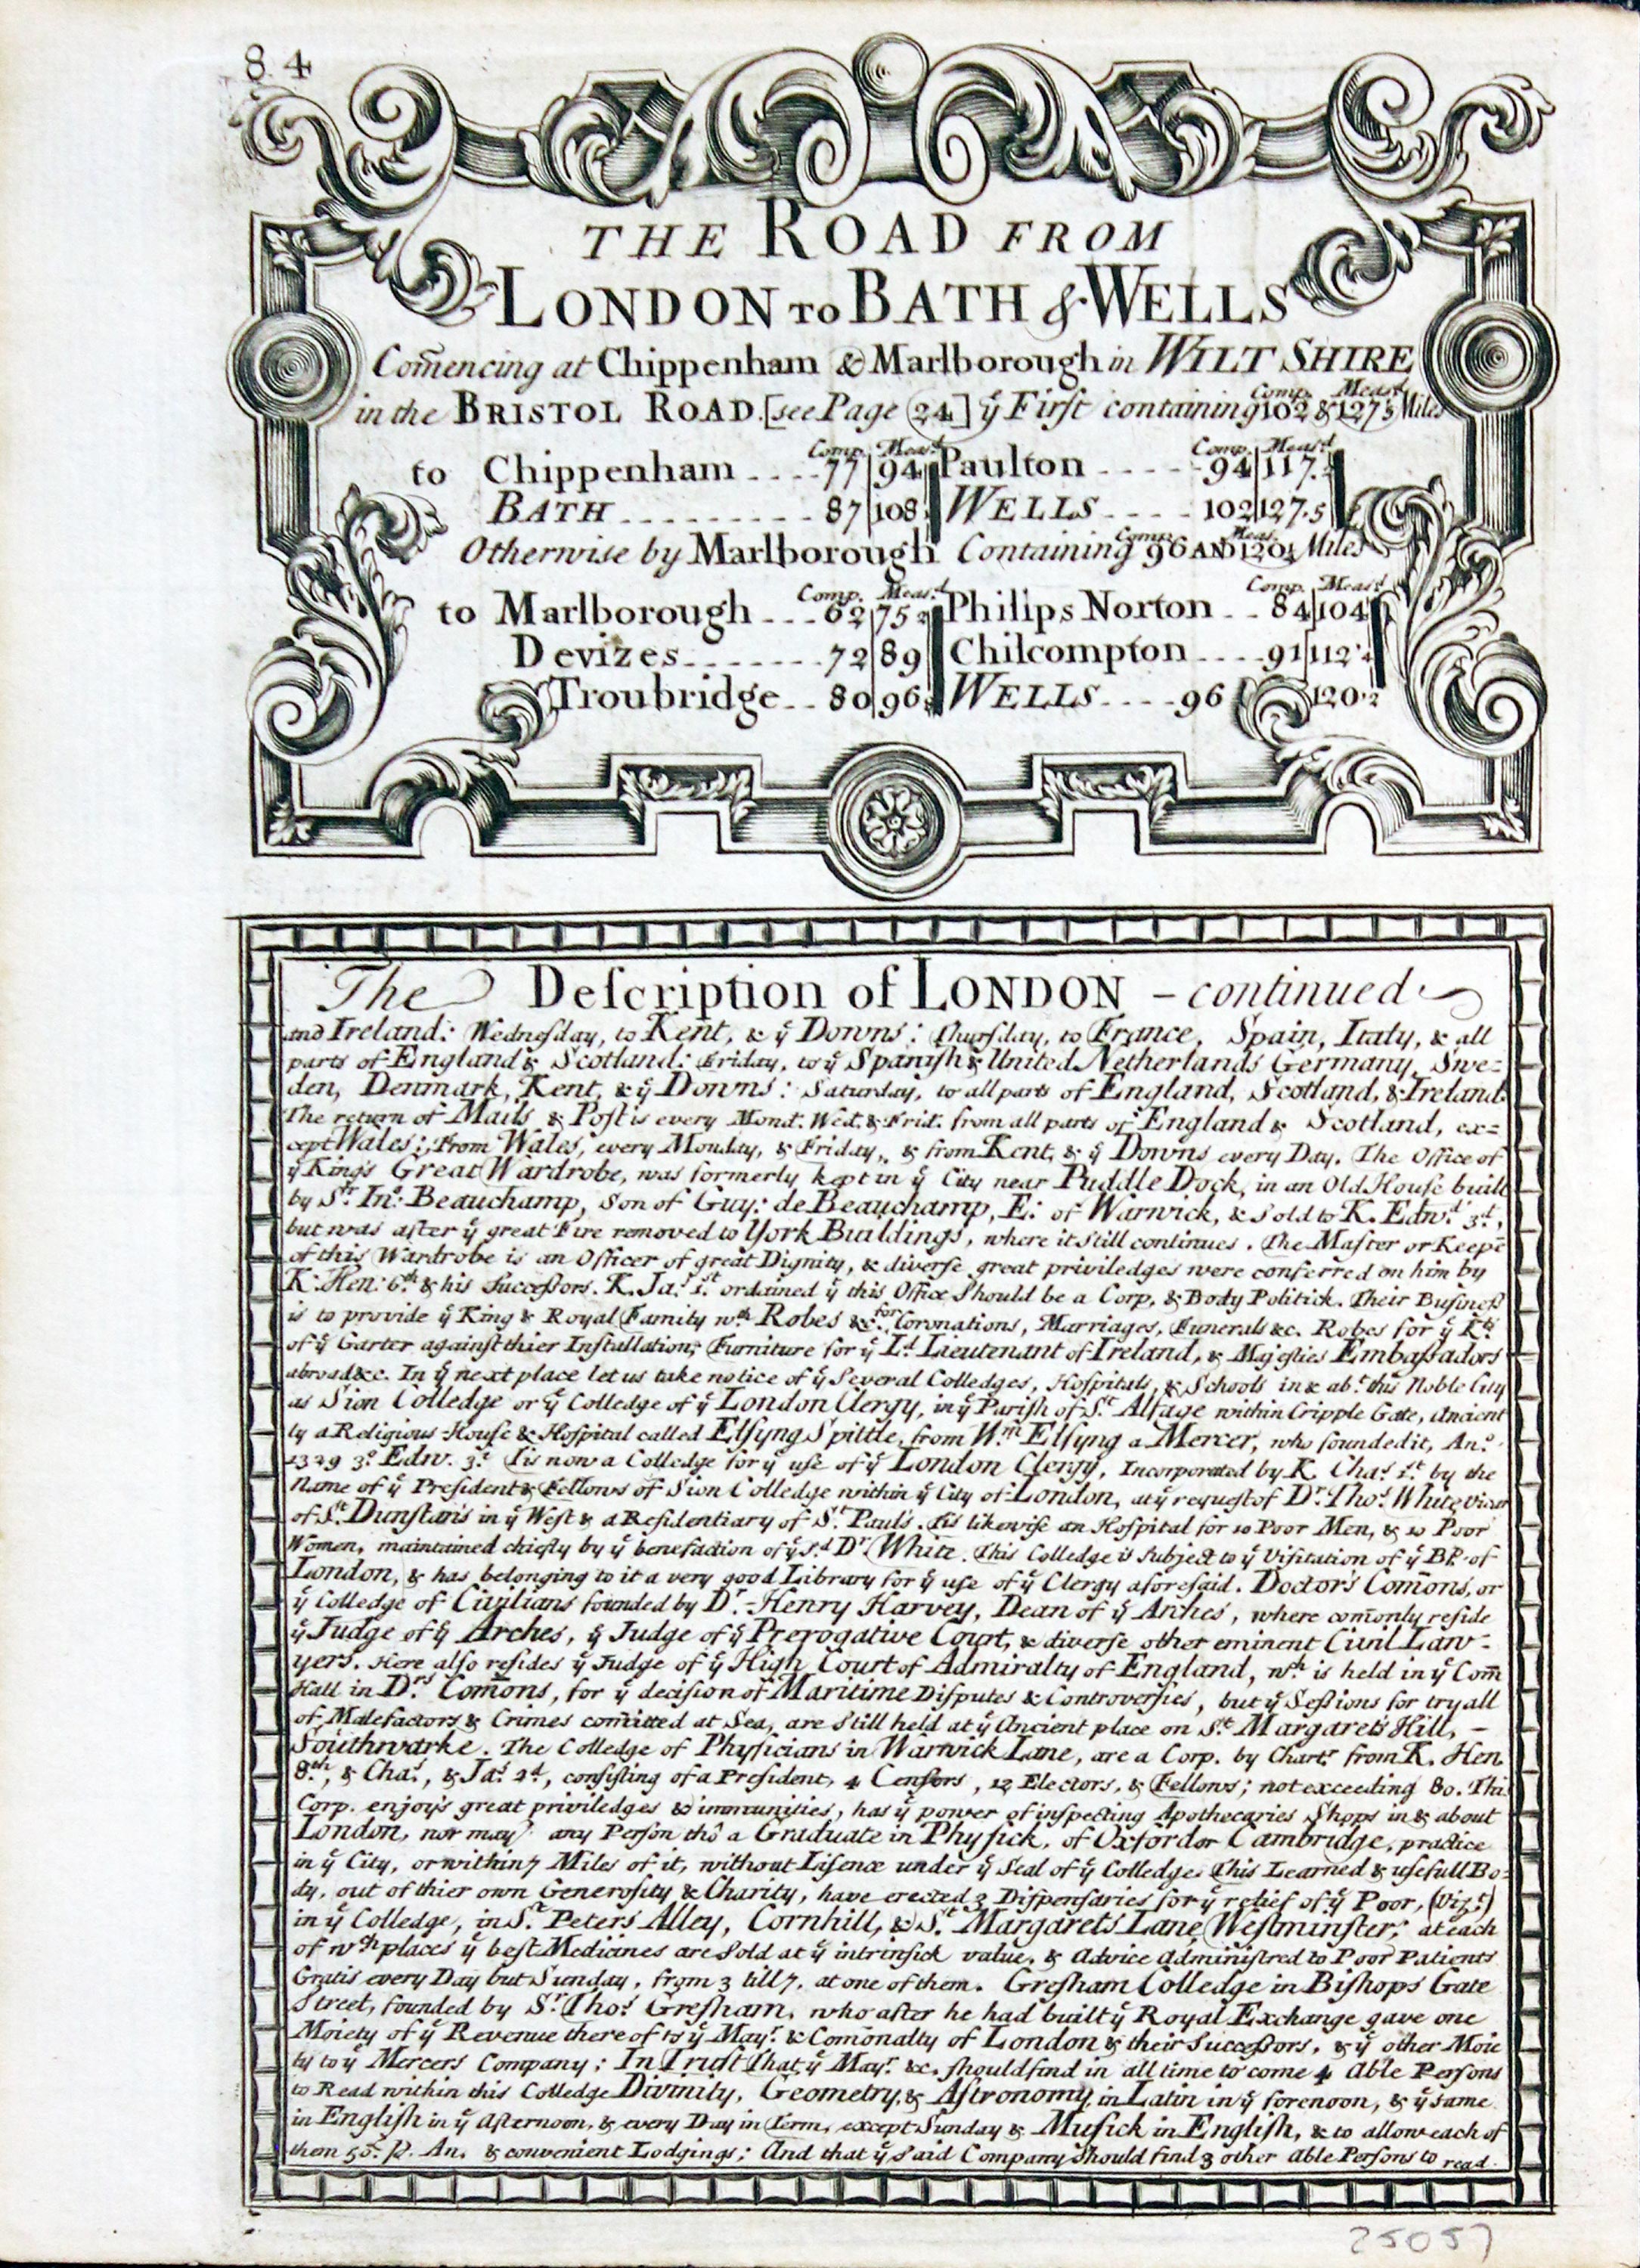 84
THE ROAD FROM
LONDON TO BATH & WELLS
Com̄encing at Chippenham & Marlborough in WILTSHIRE
in the BRISTOL ROAD. [see Page 24] ÿ First containing Comp. 102 & Meas.d 127'5 Miles
Comp. Meas.d Comp. Meas.d
to Chippenham ---- 77 94 Paulton ----- 94 117.
BATH --------- 87 108 WELLS ---- 102 127.5
Otherwise by Marlborough Containing Comp. 96 AND Meas. 120 Miles
Comp. Meas.d Comp. Meas.d
to Marlborough --- 62 75 2 Philips Norton -- 84 104
Devizes ------- 72 89 Chilcompton ---- 91 112'4
Troubridge -- 80 96 WELLS ---- 96 120'2
The Deſcription of LONDON - continued
and Ireland: Wedneſday, to Kent, & ÿ Downs: Thurſday, to France, Spain, Italy, & all
parts of England & Scotland: Friday, to ÿ Spaniſh & United Netherlands Germany, Swe=
den, Denmark, Kent, & ÿ Downs: Saturday, to all parts of England, Scotland, & Ireland.
The return of Mails & Poſt is every Mond. Wed. & Frid. from all parts of England & Scotland, ex=
cept Wales; From Wales, every Monday, & Friday, & from Kent, & ÿ Downs every Day. The Office of
ÿ King's Great Wardrobe, was formerly kept in ÿ City near Puddle Dock, in an Old Houſe built
by S.r In.o Beauchamp, Son of Guy: de Beauchamp, E: of Warwick, & Sold to K. Edw.d 3.d,
but was after ÿ great Fire removed to York Buildings, where it Still continues. The Maſter or Keepē
of this Wardrobe is an Officer of great Dignity, & diverſe great priviledges were conferred on him by
K. Hen: 6.th & his Succeſsors. K. Ja.s 1.st ordained ÿ this Office Should be a Corp. & Body Politick. Their Buſineſs
is to provide ÿ King & Royal Family w.th Robes &c. for Coronations, Marriages, Funerals &c. Robes for ÿ K.ts
of ÿ Garter againſt thier Inſtallation; Furniture for ÿ L.d Lieutenant of Ireland, & Majeſties Embaſsadors
abroad &c. In ÿ next place let us take notice of ÿ Several Colledges, Hoſpitals, & Schools in & ab.t this Noble City
as Sion Colledge or ÿ Colledge of ÿ London Clergy, in ÿ Pariſh of S.t Alfage within Cripple Gate, Ancient
ly a Religious Houſe & Hoſpital called Elſyng Spittle, from W.m Elſyng a Mercer, who founded it, An.o
1329 3.o Edw. 3.d Tis now a Colledge for ÿ uſe of ÿ London Clergy, Incorporated by K. Cha.s 1.st by the
Name of ÿ Preſident & Fellows of Sion Colledge within ÿ City of London, at ÿ requeſt of D.r Tho.s White Vicar
of S.t Dunſtan's in ÿ Weſt & a Reſidentiary of S.t Paul's. Tis likewiſe an Hoſpital for 10 Poor Men, & 10 Poor
Women, maintained chiefly by ÿ benefaction of ÿ S.d D.r White. This Colledge is Subject to ÿ Viſitation of ÿ BP. of
London, & has belonging to it a very good Library for ÿ uſe of ÿ Clergy aforeſaid. Doctor's Com̄ons, or
ÿ Colledge of Civilians founded by D.r Henry Harvey, Dean of ÿ Arches, where com̄only reſide
ÿ Judge of ÿ Arches, ÿ Judge of ÿ Prerogative Court, & diverſe other eminent Civil Law-
yers. Here alſo reſides ÿ Judge of ÿ High Court of Admiralty of England, w.ch is held in ÿ Com̄
Hall in D.rs Com̄ons, for ÿ deciſion of Maritime Diſputes & Controverſies, but ÿ Seſsions for tryall
of Malefactors & Crimes com̄itted at Sea, are Still held at ÿ Ancient place on S.t Margaret's Hill, -
Southwarke. The Colledge of Phyſicians in Warwick Lane, are a Corp. by Chart.r from K. Hen.
8.th, & Cha.s, & Ja.s 2.d, conſiſting of a Preſident, 4 Cenſors, 12 Electors, & Fellows; not exceeding 80. This
Corp. enjoy's great priviledges & immunities, has ÿ power of inſpecting Apothecaries Shops in & about
London, nor may any Perſon tho' a Graduate in Phyſick, of Oxford or Cambridge, practice
in ÿ City, or within 7 Miles of it, without Liſence under ÿ Seal of ÿ Colledge. This Learned & uſefull Bo-
dy, out of thier own Generoſity & Charity, have erected 3 Diſpenſaries for ÿ relief of ÿ Poor, (Viz.t)
in ÿ Colledge, in S.t Peters Alley, Cornhill, & S.t Margarets Lane Weſtminſter; at each
of w.ch places ÿ beſt Medicines are Sold at ÿ intrinſick value, & Advice Adminiſtred to Poor Patients
Gratis every Day but Sunday, from 3 till 7, at one of them. Greſham Colledge in Biſhops Gate
Street, founded by S.r Tho.s Greſham, who after he had built ÿ Royal Exchange gave one
Moiety of ÿ Revenue there of to ÿ May.r & Com̄onalty of London & their Succeſsors, & ÿ other Moie
ty to ÿ Mercers Company; In Truſt that ÿ May.r &c. ſhould find in all time to come 4 Able Perſons
to Read within this Colledge Divinity, Geometry, & Aſtronomy, in Latin in ÿ forenoon, & ÿ same
in Engliſh in ÿ Afternoon, & every Day in Term, except Sunday & Muſick in Engliſh, & to allow each of
them 50.£ p. An. & convenient Lodgings; And that ÿ Said Company Should find 3 other Able Perſons to read
25057